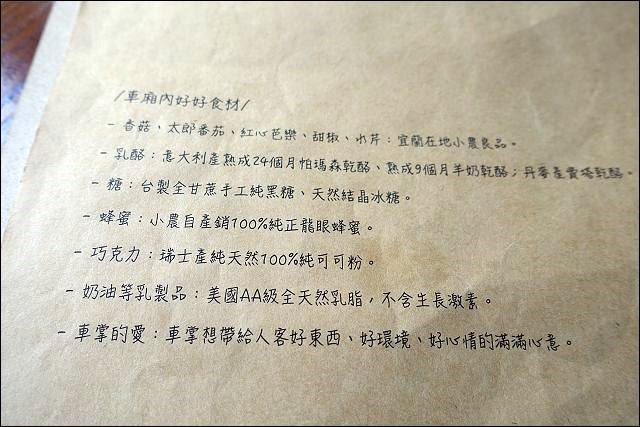 /車廂內好好食材/
- 香菇、太郎番茄、紅心芭樂、甜椒、水芹：宜蘭在地小農良品。
- 乳酪：意大利產熟成24個月帕瑪森乾酪、熟成9個月羊奶乾酪；丹麥產費塔乾酪。
- 糖：台製全甘蔗手工純黑糖、天然結晶冰糖。
- 蜂蜜：小農自產銷100%純正龍眼蜂蜜。
- 巧克力：瑞士產純天然100%純可可粉。
- 奶油等乳製品：美國AA級全天然乳脂，不含生長激素。
- 車掌的愛：車掌想帶給人客好東西、好環境、好心情的滿滿心意。